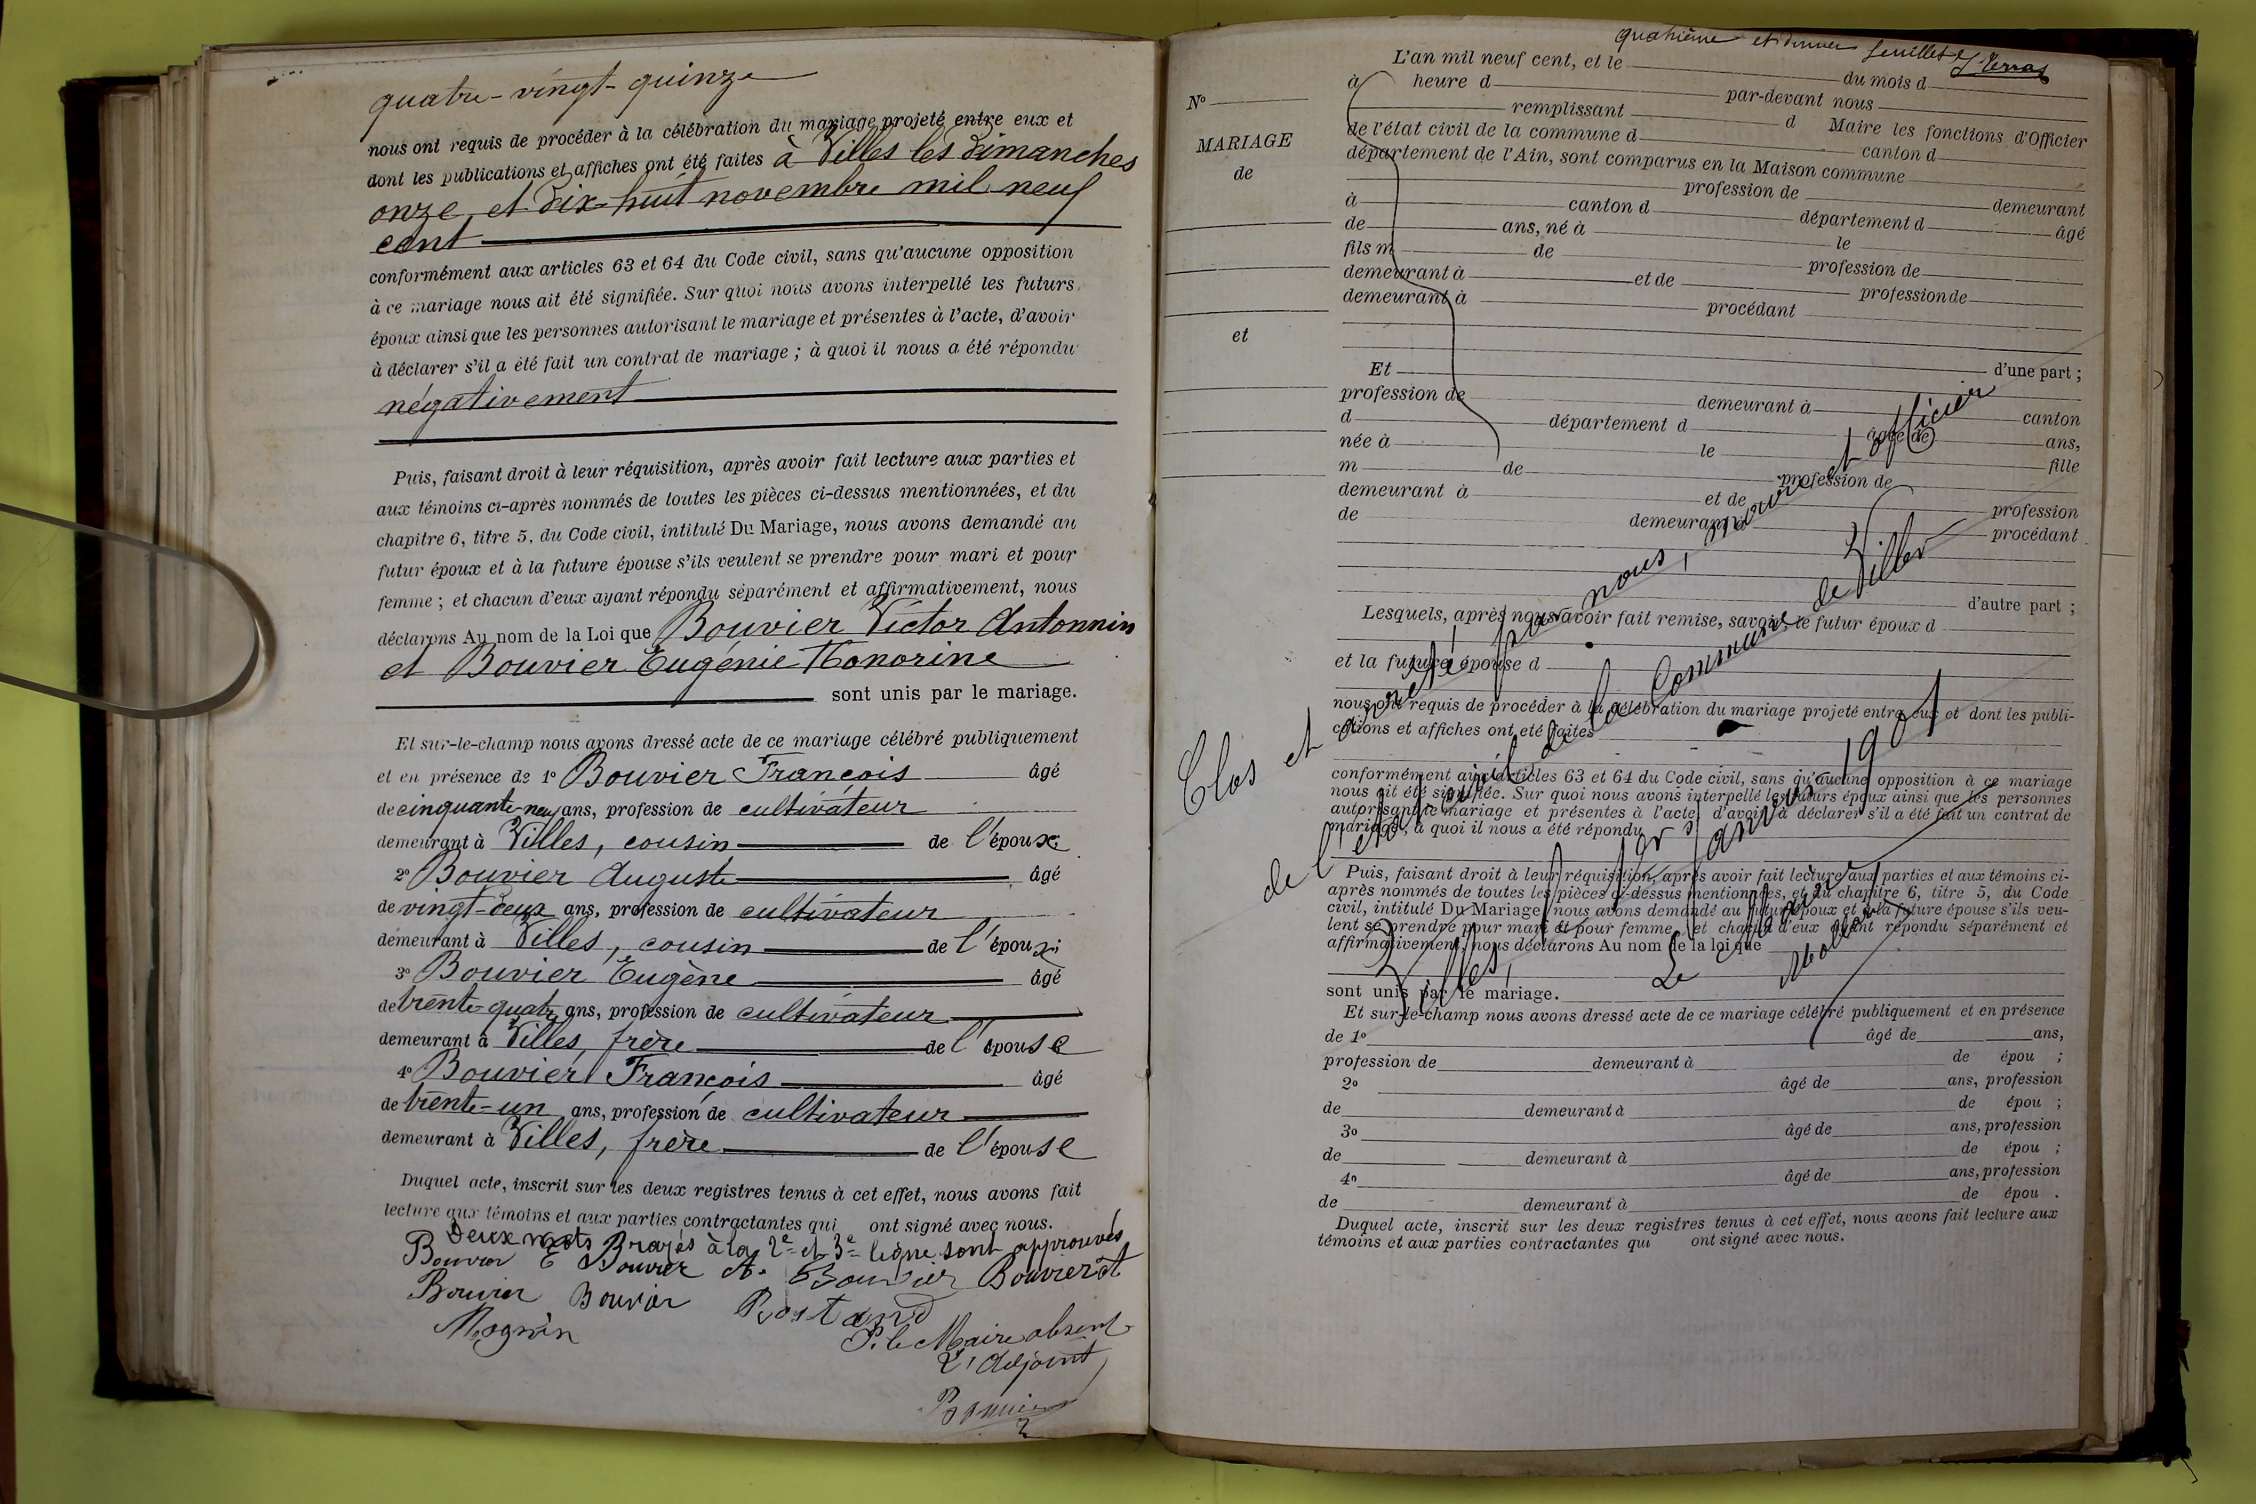 quatre-vingt-quinze
nous ont requis de procéder à la célébration du mariage projeté entre eux et
dont les publications et affiches ont été faites à Villes les Dimanches
onze et dix-huit novembre mil neuf
cent
conformément aux articles 63 et 64 du Code civil, sans qu'aucune opposition
à ce mariage nous ait été signifiée. Sur quoi nous avons interpellé les futurs
époux ainsi que les personnes autorisant le mariage et présentes à l'acte, d'avoir
à déclarer s'il a été fait un contrat de mariage ; à quoi il nous a été répondu
négativement
Puis, faisant droit à leur réquisition, après avoir fait lecture aux parties et
aux témoins ci-après nommés de toutes les pièces ci-dessus mentionnées, et du
chapitre 6, titre 5, du Code civil, intitulé Du Mariage, nous avons demandé au
futur époux et à la future épouse s'ils veulent se prendre pour mari et pour
femme ; et chacun d'eux ayant répondu séparément et affirmativement, nous
déclarons Au nom de la Loi que Bouvier Victor Antonnin
et Bouvier Eugénie Honorine
sont unis par le mariage.
Et sur-le-champ nous avons dressé acte de ce mariage célébré publiquement
et en présence de 1º Bouvier François âgé
de cinquante-neuf ans, profession de cultivateur
demeurant à Villes, cousin de l'époux;
2º Bouvier Auguste âgé
de vingt-deux ans, profession de cultivateur
demeurant à Villes, cousin de l'époux;
3º Bouvier Eugène âgé
de trente-quatre ans, profession de cultivateur
demeurant à Villes, frère de l'épouse
4º Bouvier François âgé
de trente-un ans, profession de cultivateur
demeurant à Villes, frère de l'épouse
Duquel acte, inscrit sur les deux registres tenus à cet effet, nous avons fait
lecture aux témoins et aux parties contractantes qui ont signé avec nous.
Deux mots Brayés à la 2e et 3e ligne sont approuvés
Bouvier E Bouvier A. Bouvier Bouvier
Bouvier Bouvier Rostand
Magnin
P. le Maire absent
L'adjoint
quatrième et dernier feuillet
L'an mil neuf cent, et le du mois d
à heure d par-devant nous
remplissant d Maire les fonctions d'Officier
de l'état civil de la commune d canton d
département de l'Ain, sont comparus en la Maison commune
profession de demeurant
à canton d département d âgé
de ans, né à le
fils m de profession de
demeurant à et de profession de
demeurant à procédant
d'une part ;
Et
profession de demeurant à canton
d département d âgée de ans,
née à le fille
m de profession de
demeurant à et de profession
de demeurant à procédant
d'autre part ;
Lesquels, après nous avoir fait remise, savoir, le futur époux d
et la future épouse d
nous ont requis de procéder à la célébration du mariage projeté entre eux et dont les publi-
cations et affiches ont été faites
conformément aux articles 63 et 64 du Code civil, sans qu'aucune opposition à ce mariage
nous ait été signifiée. Sur quoi nous avons interpellé les futurs époux ainsi que les personnes
autorisant le mariage et présentes à l'acte, d'avoir à déclarer s'il a été fait un contrat de
mariage, à quoi il nous a été répondu
Puis, faisant droit à leur réquisition, après avoir fait lecture aux parties et aux témoins ci-
après nommés de toutes les pièces ci-dessus mentionnées, et du chapitre 6, titre 5, du Code
civil, intitulé Du Mariage, nous avons demandé au futur époux et à la future épouse s'ils veu-
lent se prendre pour mari et pour femme, et chacun d'eux ayant répondu séparément et
affirmativement, nous déclarons Au nom de la loi que
sont unis par le mariage.
Et sur-le-champ nous avons dressé acte de ce mariage célébré publiquement et en présence
de 1º âgé de ans,
profession de demeurant à de épou ;
2º âgé de ans, profession
de demeurant à de épou ;
3º âgé de ans, profession
de demeurant à de épou ;
4º âgé de ans, profession
de demeurant à de épou .
Duquel acte, inscrit sur les deux registres tenus à cet effet, nous avons fait lecture aux
témoins et aux parties contractantes qui ont signé avec nous.
Nº
MARIAGE
de
et
Clos et arrêté par nous, maire et officier
de l'état civil de la Commune de Villes
Villes, le 1er janvier 1901
Le Maire